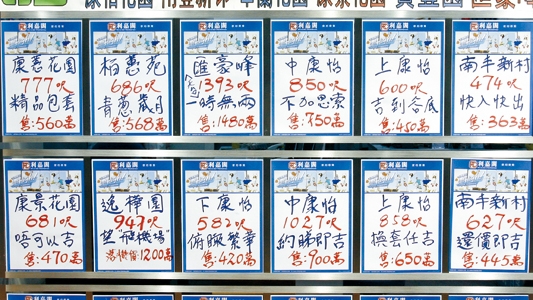 康怡花園
利嘉閣
康惠花園
777呎
精品包套
售:560萬
利嘉閣
柏蕙苑
686呎
青蔥歲月
售:568萬
利嘉閣
匯豪峰
1393呎
一時無兩
售:1480萬
利嘉閣
中康怡
850呎
不加思索
售:750萬
利嘉閣
上康怡
600呎
吉到各底
售:450萬
利嘉閣
南丰新村
474呎
快入快出
售:363萬
利嘉閣
康景花園
681呎
唔可以吉
售:470萬
利嘉閣
逸樺園
947呎
望"飛機場"
海機館1200萬
利嘉閣
下康怡
582呎
俯瞰繁華
售:420萬
利嘉閣
中康怡
1027呎
約睇即吉
售:900萬
利嘉閣
上康怡
858呎
換套任吉
售:650萬
利嘉閣
南丰新村
627呎
還價即吉
售:445萬